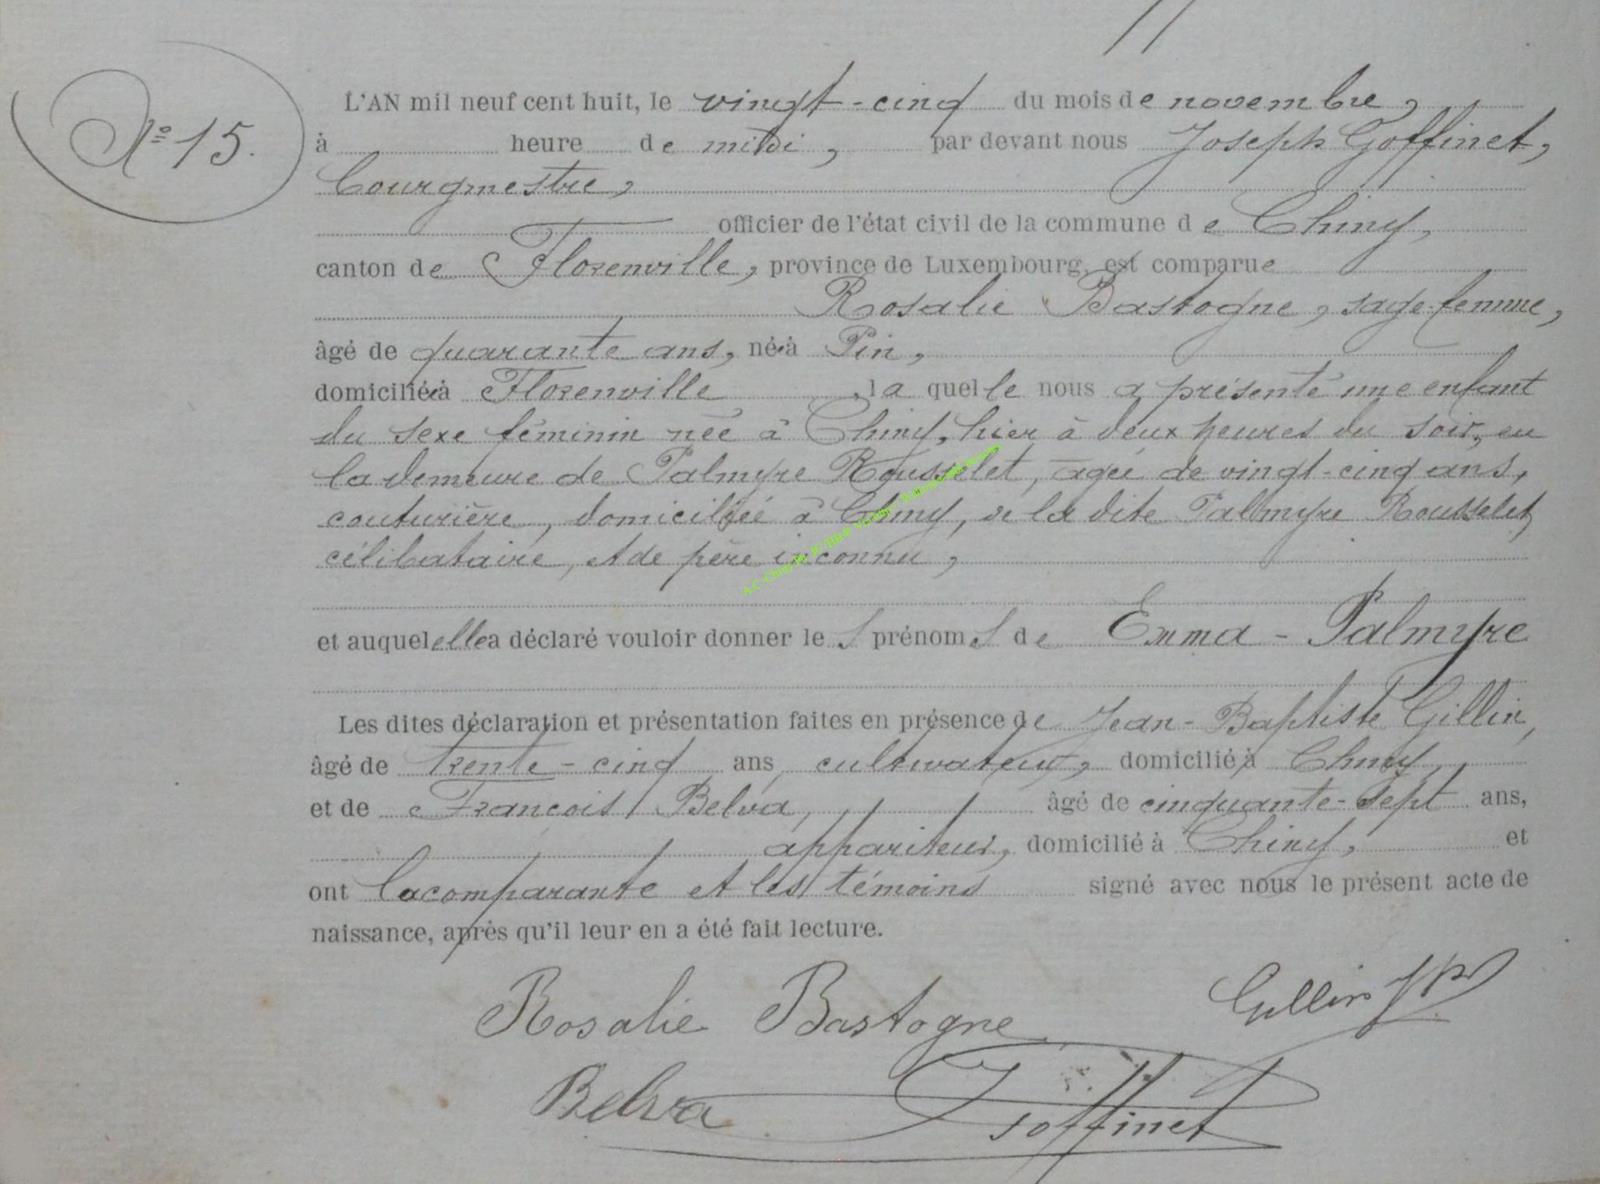 N° 15.
L'AN mil neuf cent huit, le vingt-cinq du mois de novembre,
à heure de midi, par devant nous Joseph Goffinet,
bourgmestre,
officier de l'état civil de la commune de Chiny,
canton de Florenville, province de Luxembourg, est comparue
Rosalie Bastogne, sage-femme,
âgé de quarante ans, née à Pin,
domiciliée à Florenville, laquelle nous a présenté une enfant
du sexe féminin née à Chiny, hier à deux heures du soir, en
la demeure de Palmyre Rousselet, agée de vingt-cinq ans,
couturière, domiciliée à Chiny, de la dite Palmyre Rousselet,
célibataire, et de père inconnu,
et auquel elle a déclaré vouloir donner les prénoms de Emma-Palmyre
Les dites déclaration et présentation faites en présence de Jean-Baptiste Gillin,
âgé de trente-cinq ans, cultivateur, domicilié à Chiny,
et de François Belva, âgé de cinquante-sept ans,
appariteur, domicilié à Chiny, et
ont la comparante et les témoins signé avec nous le présent acte de
naissance, après qu'il leur en a été fait lecture.
Rosalie Bastogne Gillin
Belva J Goffinet